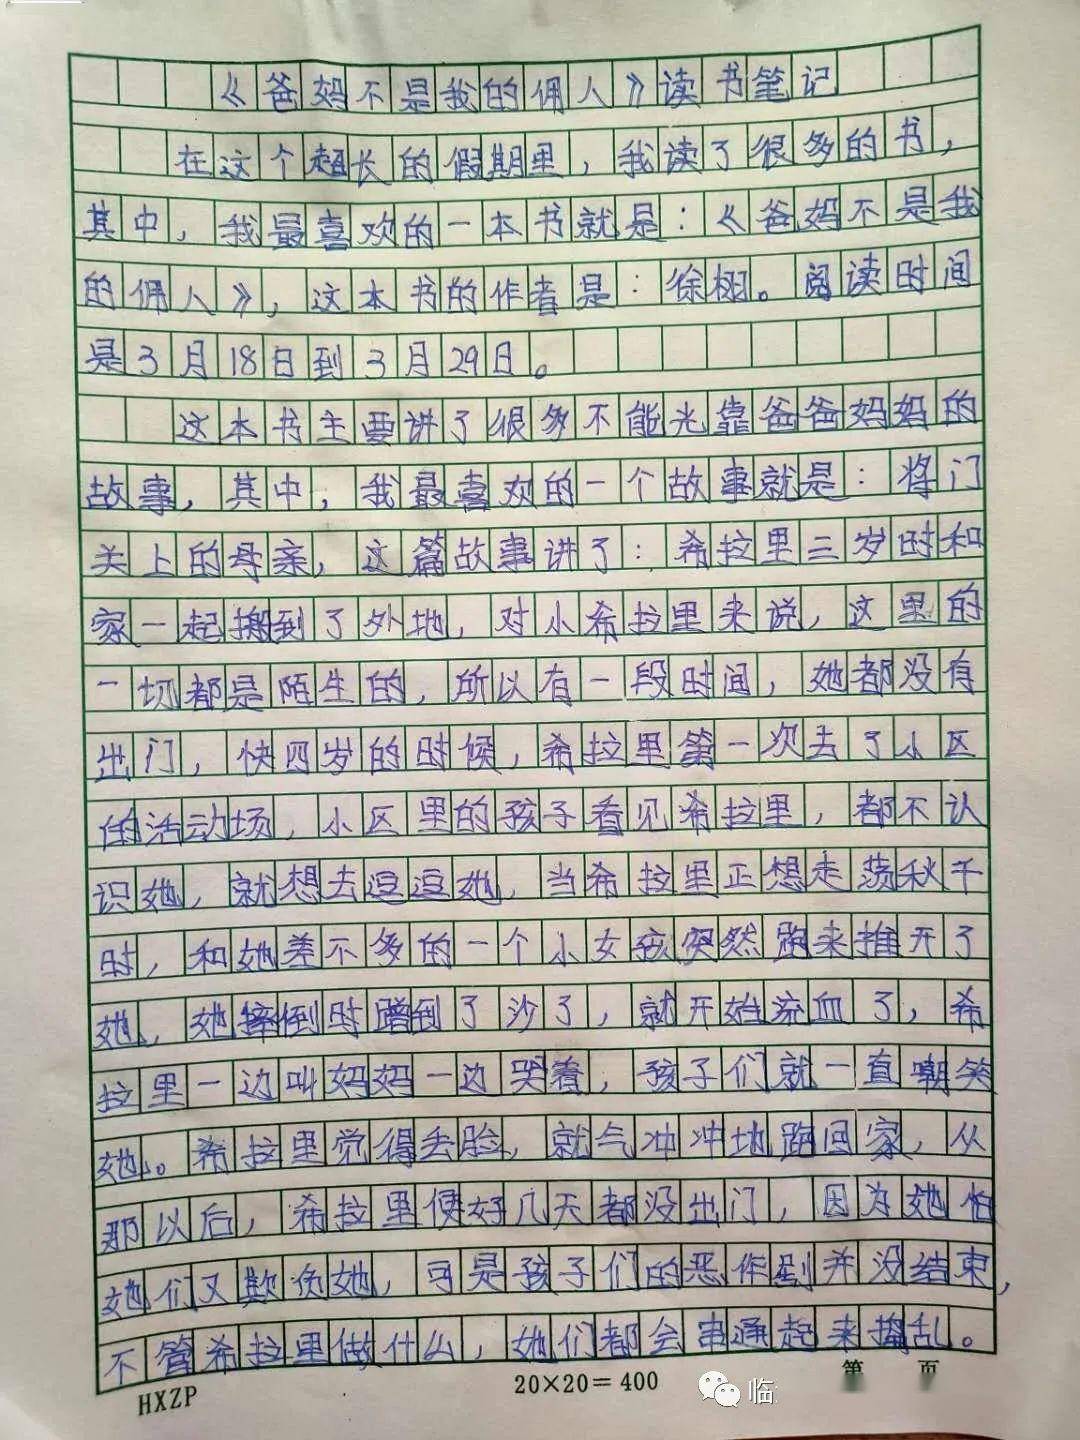 《爸妈不是我的佣人》读书笔记
在这个超长的假期里，我读了很多的书，
其中，我最喜欢的一本书就是：《爸妈不是我
的佣人》，这本书的作者是：徐栩。阅读时间
是3月18日到3月29日。
这本书主要讲了很多不能光靠爸爸妈妈的
故事，其中，我最喜欢的一个故事就是：将门
关上的母亲，这篇故事讲了：希拉里三岁时和
家一起搬到了外地，对小希拉里来说，这里的
一切都是陌生的，所以有一段时间，她都没有
出门，快四岁的时候，希拉里第一次去了小区
的活动场，小区里的孩子看见希拉里，都不认
识她，就想去逗逗她，当希拉里正想走荡秋千
时，和她差不多的一个小女孩突然跑来推开了
她，她摔倒时蹭到了沙了，就开始流血了，希
拉里一边叫妈妈一边哭着，孩子们就一直嘲笑
她。希拉里觉得丢脸，就气冲冲地跑回家，从
那以后，希拉里便好几天都没出门，因为她怕
她们又欺负她，可是孩子们的恶作剧并没结束，
不管希拉里做什么，她们都会串通起来捣乱。
HXZP
20×20=400
临
第 页